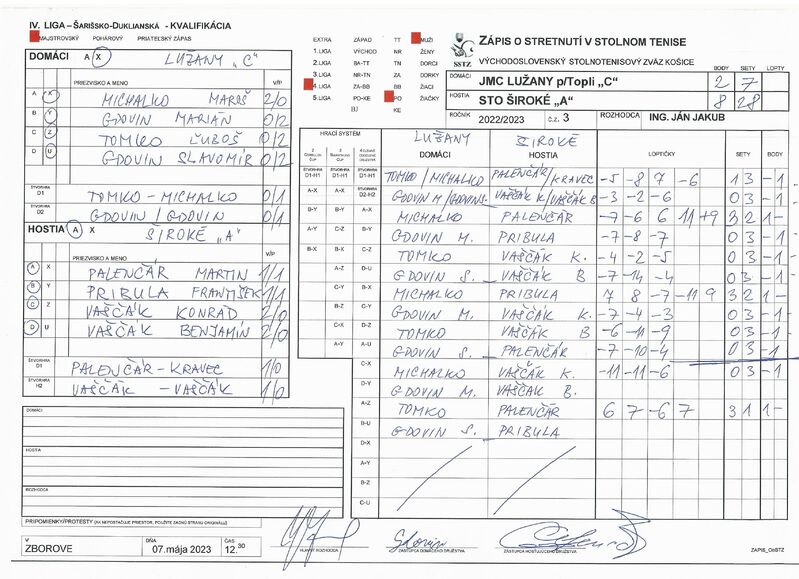 IV. LIGA – ŠARIŠSKO-DUKLIANSKÁ - KVALIFIKÁCIA
MAJSTROVSKÝ POHÁROVÝ PRIATEĽSKÝ ZÁPAS
DOMÁCI A X LUŽANY „C"
PRIEZVISKO A MENO V/P
A X MICHALKO MAROŠ 2/0
B Y GDOVIN MARIÁN 0/2
C Z TOMKO ĽUBOŠ 0/2
D U GDOVIN SLAVOMÍR 0/2
ŠTVORHRA D1 TOMKO - MICHALKO 0/1
ŠTVORHRA D2 GDOVIN / GDOVIN 0/1
HOSTIA A X ŠIROKÉ „A"
PRIEZVISKO A MENO V/P
A X PALENČÁR MARTIN 1/1
B Y PRIBULA FRANTIŠEK 1/1
C Z VAŠČÁK KONRÁD 2/0
D U VAŠČÁK BENJAMÍN 2/0
ŠTVORHRA D1 PALENČÁR - KRAVEC 1/0
ŠTVORHRA H2 VAŠČÁK - VAŠČÁK 1/0
DOMÁCI
HOSTIA
ROZHODCA
PRIPOMIENKY/PROTESTY (AK NEPOSTAČUJE PRIESTOR, POUŽITE ZADNÚ STRANU ORIGINÁLU)
V ZBOROVE DŇA 07.mája 2023 ČAS 12.30
EXTRA ZÁPAD TT MUŽI
1.LIGA VÝCHOD NR ŽENY
2.LIGA BA-TT TN DORCI
3.LIGA NR-TN ZA DORKY
4.LIGA ZA-BB BB ŽIACI
5.LIGA PO-KE PO ŽIAČKY
BJ KE
SSTZ
ZÁPIS O STRETNUTÍ V STOLNOM TENISE
VÝCHODOSLOVENSKÝ STOLNOTENISOVÝ ZVÄZ KOŠICE
BODY SETY LOPTY
DOMÁCI JMC LUŽANY p/Topli „C" 2 7
HOSTIA STO ŠIROKÉ „A" 8 28
ROČNÍK 2022/2023 č.z. 3 ROZHODCA ING. JÁN JAKUB
HRACÍ SYSTÉM
LUŽANY ŠIROKÉ
DOMÁCI HOSTIA LOPTIČKY SETY BODY
ŠTVORHRA D1-H1 ŠTVORHRA D1-H1 TOMKO/MICHALKO PALENČÁR/KRAVEC -5 -8 7 -6 1 3 -1
A-X A-X ŠTVORHRA D2-H2 GDOVIN M/GDOVIN S. VAŠČÁK K/VAŠČÁK B -3 -2 -6 0 3 -1
B-Y B-Y A-X MICHALKO PALENČÁR -7 -6 6 11 +9 3 2 1-
A-Y C-Z B-Y GDOVIN M. PRIBULA -7 -8 -7 0 3 -1
B-X B-X C-Z TOMKO VAŠČÁK K. -4 -2 -5 0 3 -1
A-Z D-U GDOVIN S. VAŠČÁK B -7 -14 -4 0 3 -1
C-Y A-Y MICHALKO PRIBULA 7 8 -7 -11 9 3 2 1-
B-Z GDOVIN M. VAŠČÁK K. -7 -4 -3 0 3 -1
C-X TOMKO VAŠČÁK B -6 -11 -9 0 3 -1
A-Y GDOVIN S. PALENČÁR -7 -10 -4 0 3 -1
C-X MICHALKO VAŠČÁK K. -11 -11 -6 0 3 -1
D-Y GDOVIN M. VAŠČÁK B.
A-Z TOMKO PALENČÁR 6 7 -6 7 3 1 1-
B-U GDOVIN S. PRIBULA
D-X
A-Y
B-Z
C-U
HLAVNÝ ROZHODCA ZÁSTUPCA DOMÁCEHO DRUŽSTVA ZÁSTUPCA HOSŤUJÚCEHO DRUŽSTVA ZÁPIS_OoSTZ